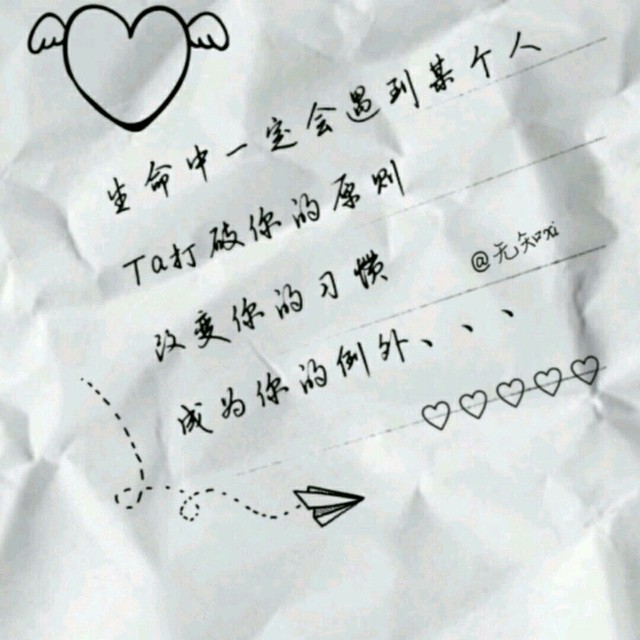 生命中一定会遇到某个人
Ta打破你的原则
改变你的习惯
成为你的例外、、、